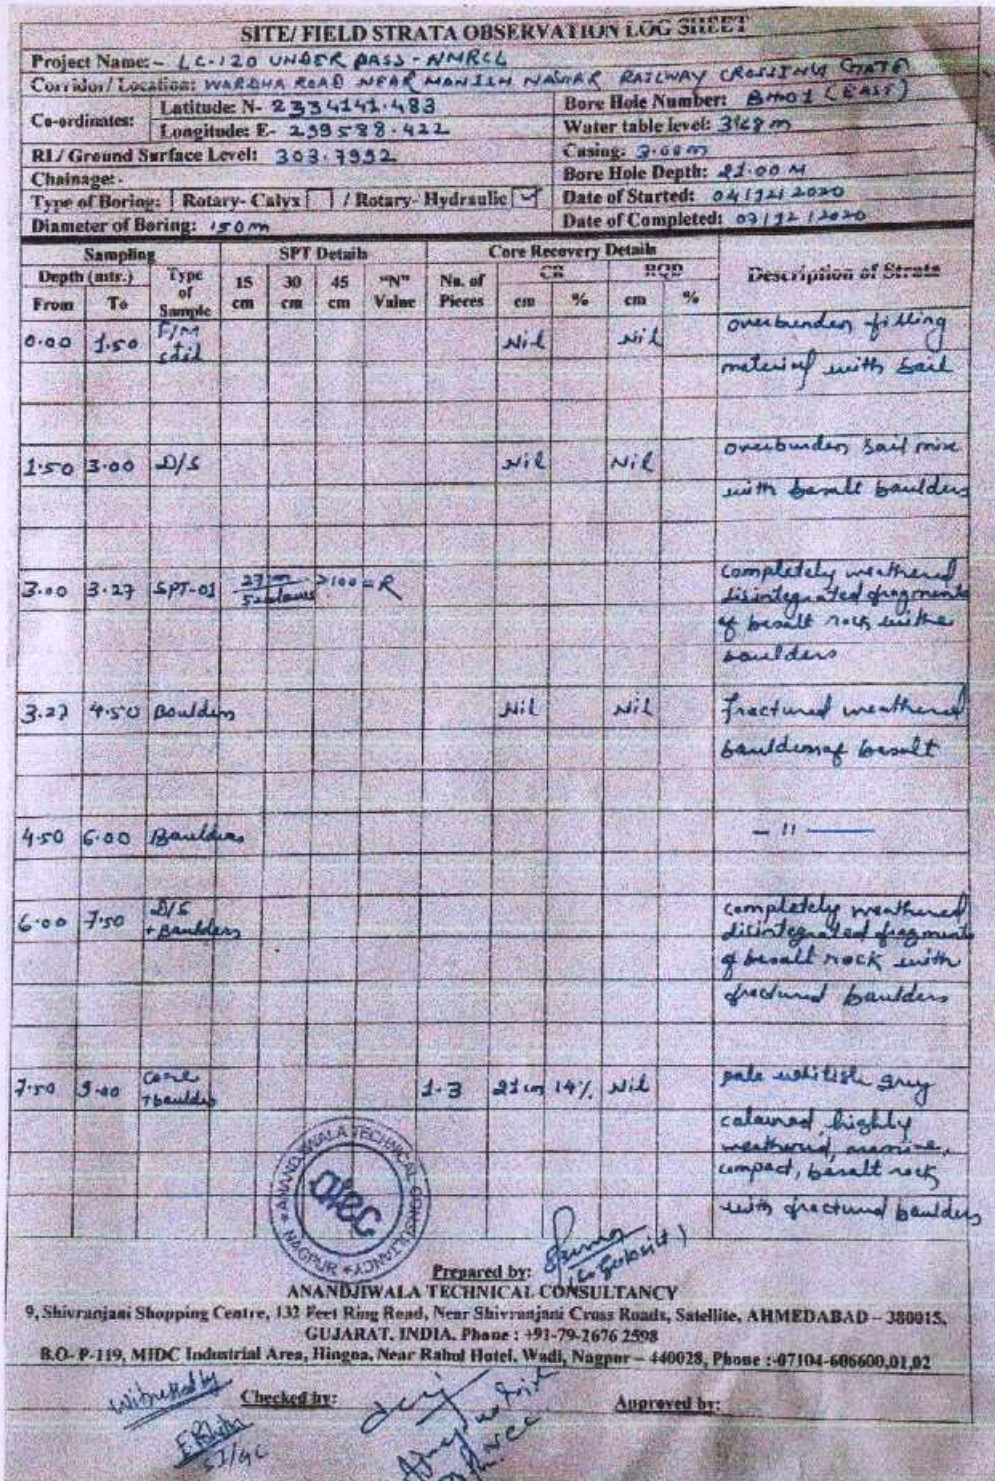 SITE/ FIELD STRATA OBSERVATION LOG SHEET
Project Name:- LC-120 UNDER PASS - NMRCL
Corridor/ Location: WARDHA ROAD NEAR MANISH NAGAR RAILWAY CROSSING GATE
Co-ordinates: Latitude: N- 2334141.483 Bore Hole Number: BH01 (EAST)
Longitude: E- 299588.422 Water table level: m
RL/ Ground Surface Level: 303.7992 Casing: 3.00m
Chainage:- Bore Hole Depth: 21.00 M
Type of Boring: Rotary- Calyx / Rotary- Hydraulic Date of Started: 04/12/2020
Diameter of Boring: 150m Date of Completed: 07/12/2020
Sampling SPT Details Core Recovery Details Description of Strata
Depth (mtr.) Type of Sample 15 cm 30 cm 45 cm "N" Value No. of Pieces CR RQD
From To cm % cm %
0.00 1.50 F/M soil Nil Nil overburden filling
material with soil
1.50 3.00 D/S Nil Nil overburden soil mix
with basalt baulders
3.00 3.27 SPT-01 27cm 52 blows >100 = R completely weathered
disintegrated fragments
of basalt rock
baulders
3.27 4.50 Boulders Nil Nil fractured weathered
baulders of basalt
4.50 6.00 Baulders — 11 —
6.00 7.50 D/S + Baulders completely weathered
disintegrated fragments
of basalt rock with
fractured baulders
7.50 9.00 Core + baulder 1-3 21cm 14% Nil pale whitish grey
coloured, highly
weathered,
compact, basalt rock
with fractured baulders
ANANDJIWALA TECHNICAL CONSULTANCY
NAGPUR
atec
Prepared by:
ANANDJIWALA TECHNICAL CONSULTANCY
9, Shivranjani Shopping Centre, 132 Feet Ring Road, Near Shivranjani Cross Roads, Satellite, AHMEDABAD – 380015,
GUJARAT, INDIA. Phone : +91-79-2676 2598
B.O- P-119, MIDC Industrial Area, Hingna, Near Rahul Hotel, Wadi, Nagpur – 440028, Phone :-07104-606600,01,02
Witnessed by Checked by: Approved by: